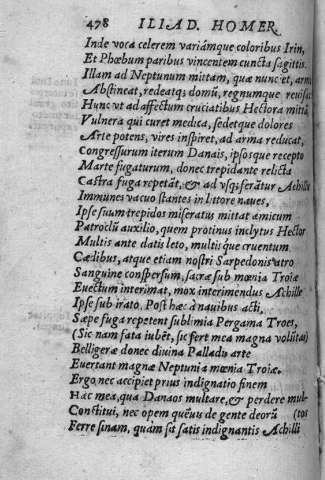 478 ILIAD. HOMER
Inde voca celerem variámque coloribus Irin,
Et Phœbum paribus vincentem cuncta sagittis.
Illam ad Neptunum mittam, quæ nunc et, arm
Abstineat, redeatqꝫ domũ, regnumque revisat
Hunc ut ad affectum cruciatibus Hectora mittã
Vulnera qui curet medica, sedetque dolores
Arte potens, vires inspiret, ad arma reducat,
Congressurum iterum Danais, ipsosque recepto
Marte fugaturum, donec trepidante relicta
Castra fuga repetãt, & ad vsqꝫ ferãtur Achille
Immunes vacuo stantes in littore naves,
Ipse suum trepidos miseratus mittat amicum
Patroclũ auxilio, quem protinus inclytus Hector
Multis ante datis leto, multisque cruentum
Cædibus, atque etiam nostri Sarpedonis atro
Sanguine conspersum, sacræ sub mœnia Troiæ
Evectum interimat, mox interimendus Achille
Ipse sub irato. Post hæc à navibus acti,
Sæpe fuga repetent sublimia Pergama Troes,
(Sic nam fata iubẽt, sic fert mea magna volũtas)
Belligeræ donec divina Palladis arte
Evertant magnæ Neptunia mœnia Troiæ.
Ergo nec accipiet prius indignatio finem
Hæc mea, qua Danaos multare, & perdere mul-
Constitui, nec opem quẽvis de gente deorũ (tos
Ferre sinam, quàm sit satis indignantis Achilli